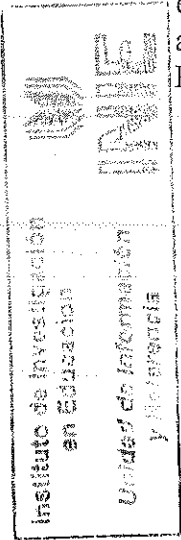 INIE
Instituto de Investigación
en Educación
Unidad de Información
y Referencia